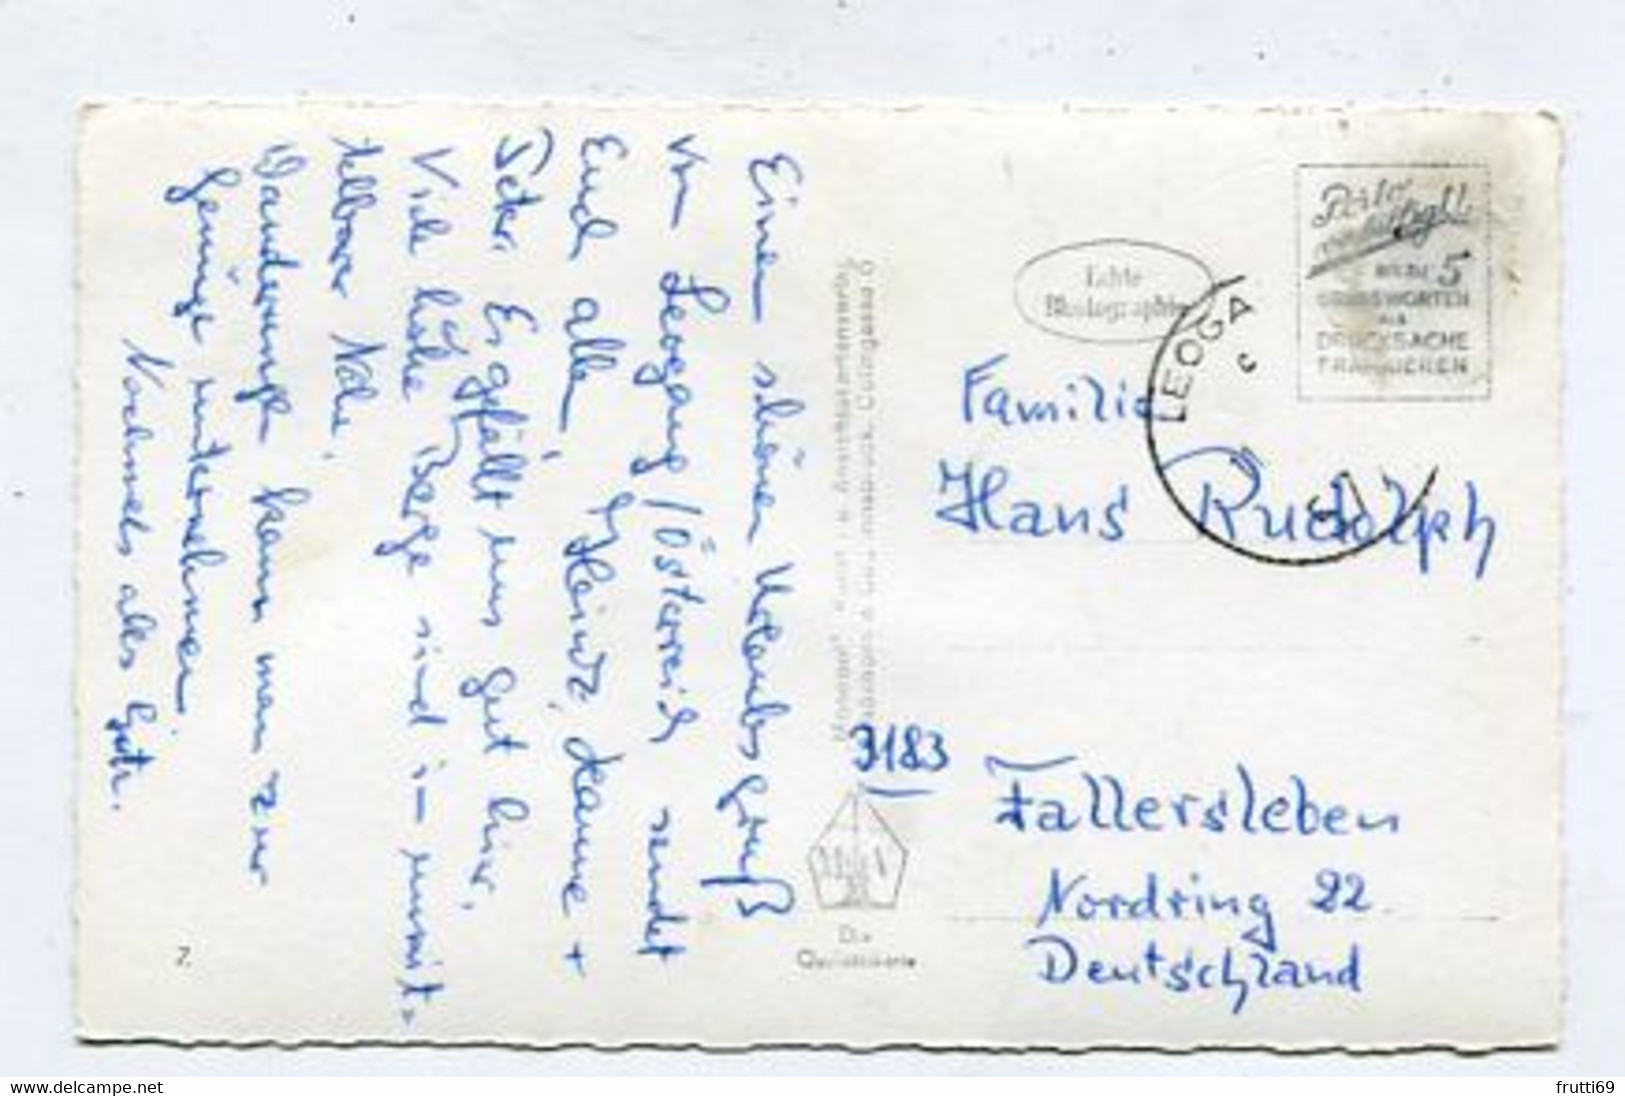 Einen schönen Urlaubsgruß
von Leogang/Österreich sendet
Euch alle, Heinz, Hanne +
Peter. Es gefällt uns gut hier.
Viele hohe Berge sind in unmit=
telbarer Nähe.
Wanderungen kann man zur
Genüge unternehmen.
Nochmals alles Gute.
Echte
Photographie
Porto
5
GRUSSWORTEN
ALS
DRUCKSACHE
FRANKIEREN
LEOGA
Familie
Hans Rudolph
3183
Fallersleben
Nordring 22
Deutschland
Die
Qualitätskarte
7.
frutti69
www.delcampe.net